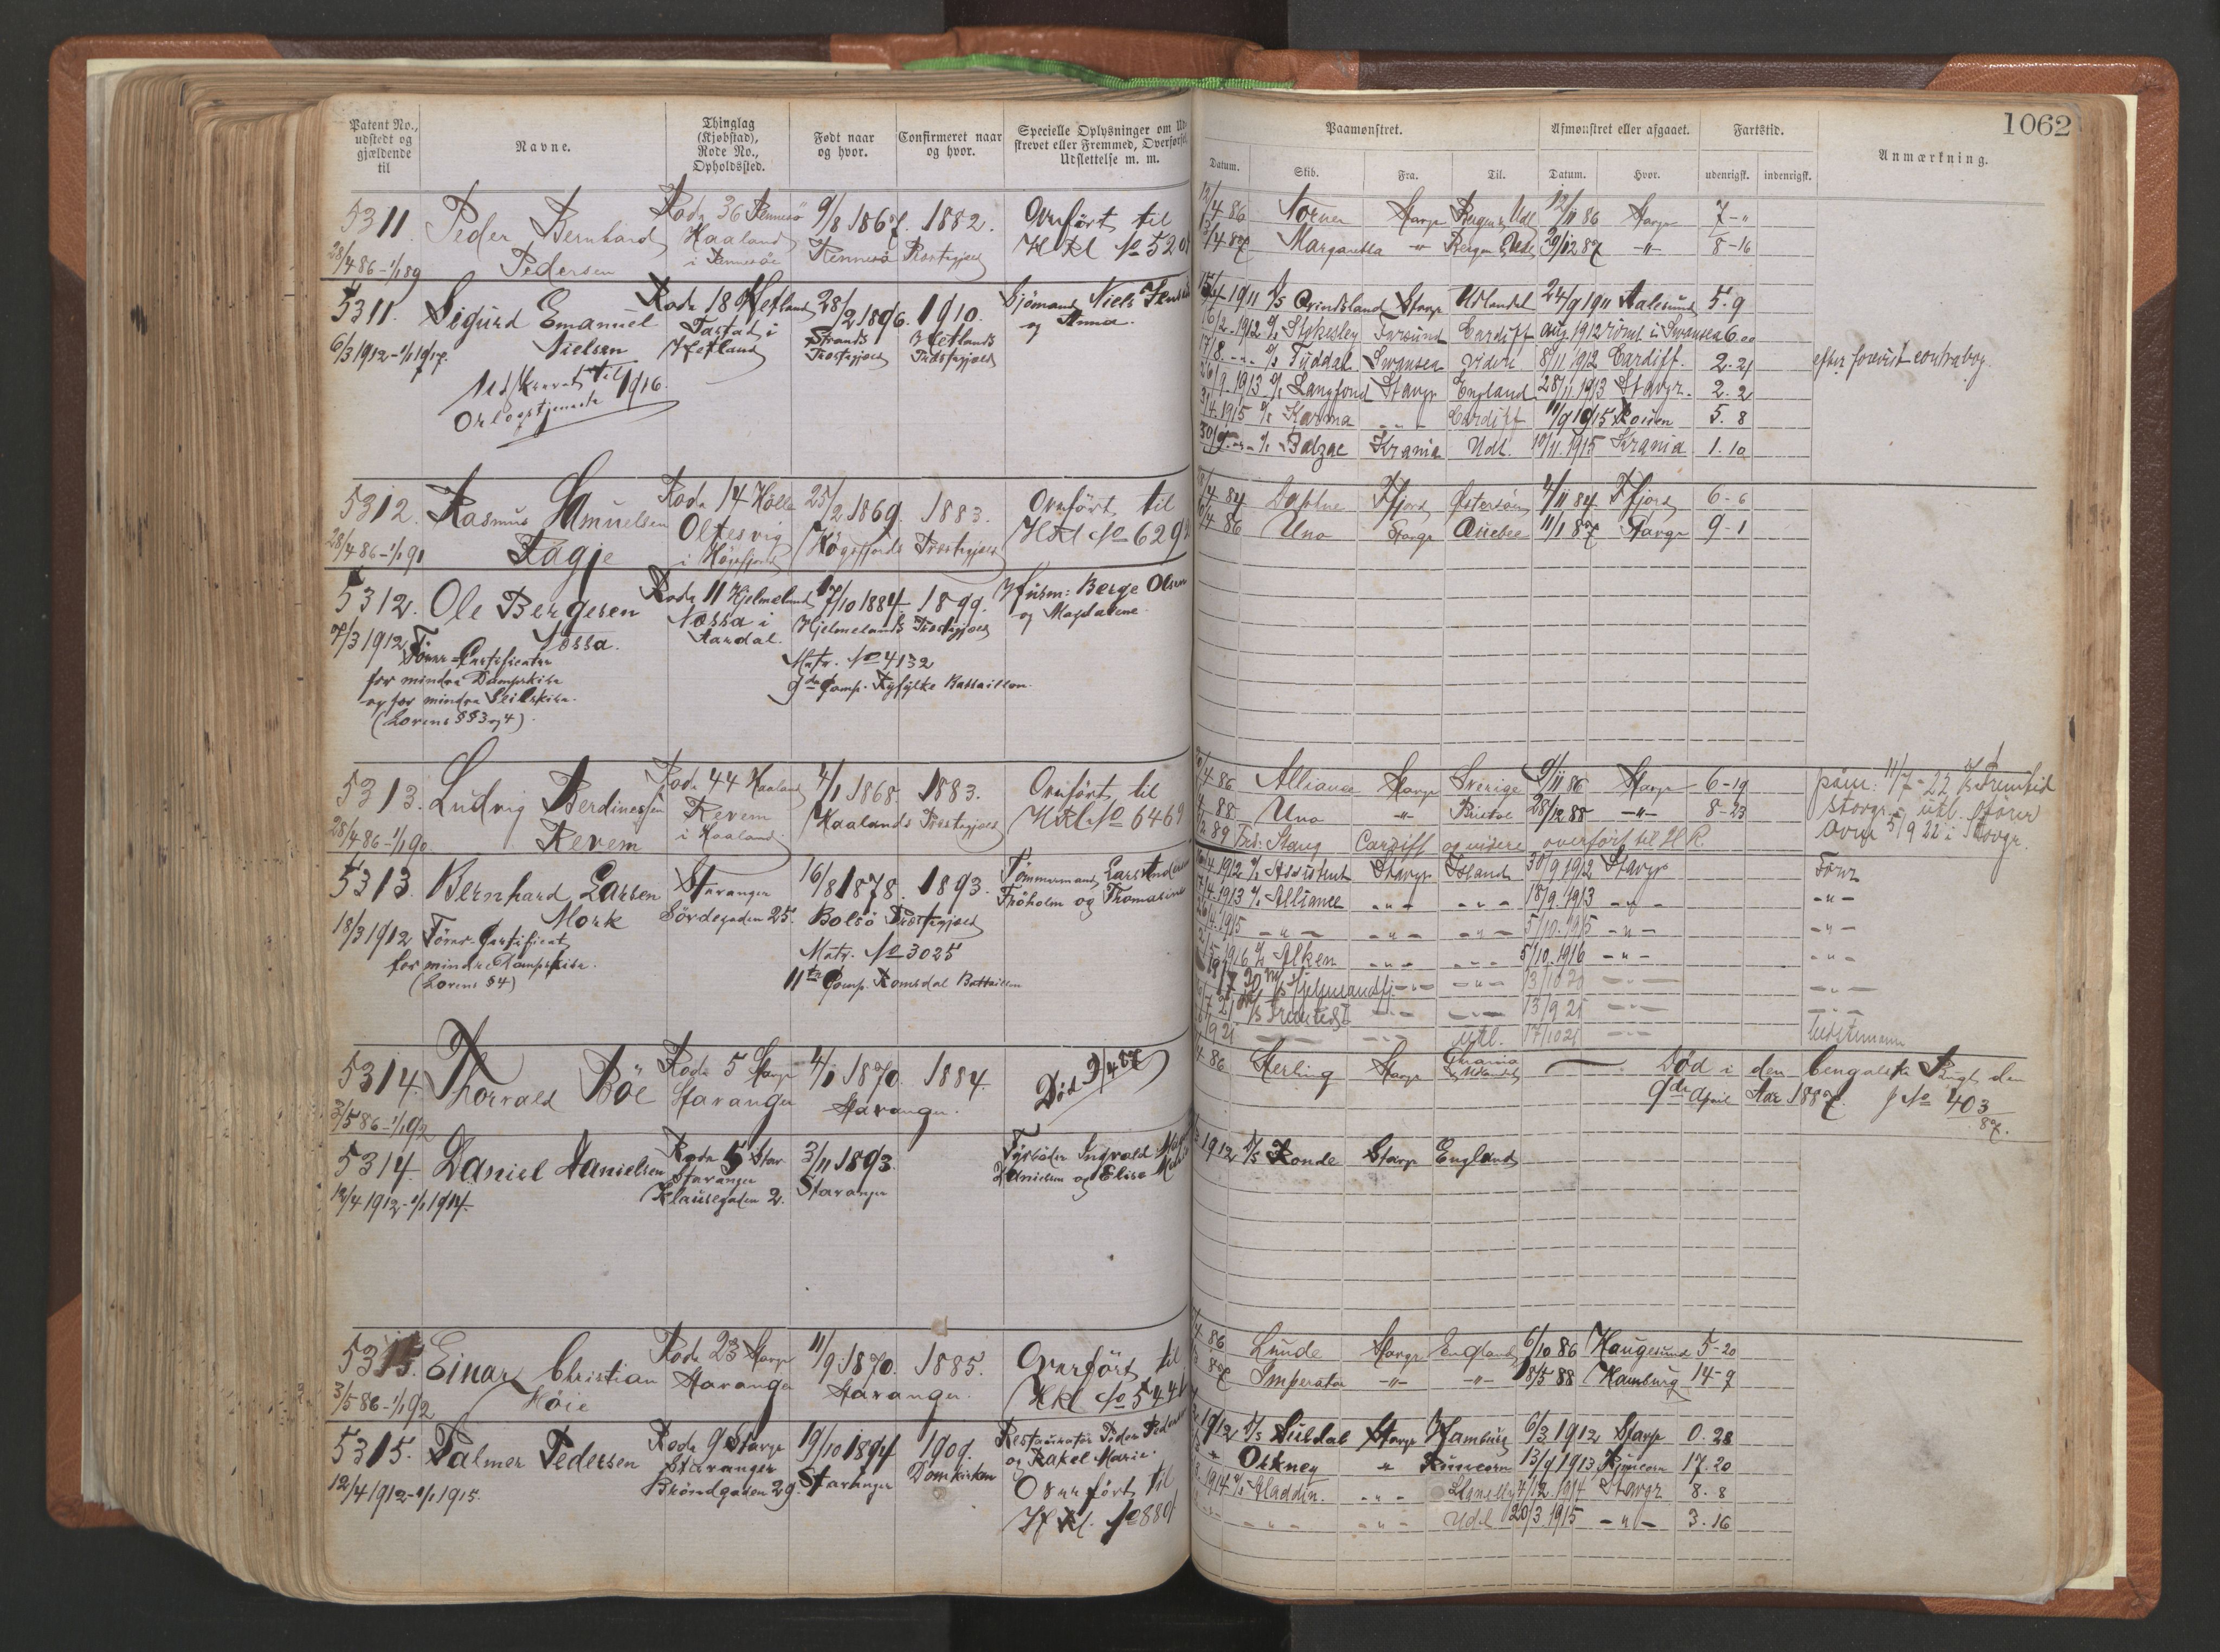 Patent No., udstedt og gjældende til
Navne.
Thinglag (Kjøbstad), Rode No., Opholdssted.
Født naar og hvor.
Confirmeret naar og hvor.
Specielle Oplysninger om Ud-
skrevet eller Fremmed, Overførsel,
Udslettelse m. m.
Paamønstret.
Afmønstret eller afgaaet.
Fartstid.
Anmærkning.
1062
Datum. Skib. Fra. Til. Datum. Hvor. udenrigsk. indenrigsk.
5311 Peder Bernhard Rode 36 Rennesø 9/8 1867. 1882. Overført til
28/4 86 - 1/1 89 Pedersen Haaland i Rennesøe Rennesø Præstegjæld HRl No 520
12/4 86 Norner Stavgr Bergen & Udl 12/11 86 Stavgr 7 - "
13/4 87 Margaretha - " - Bergen & Udl 29/12 87 - " - 8 - 16
5311. Sigurd Emanuel Rode 18 Hetland 28/2 1896. 1910. Sjömand Niels
6/3 1912 - 1/1 1917. Nielsen Tastad i Hetland Strands Præstegjæld Hetlands Præstegjæld og Anna.
Udskrevet til 1916.
Orlogstjeneste
15/4 1911 D/S Qvindsland Stavgr Udlandet 24/9 1911 Aalesund 5. 9
16/2. 1912 D/S Stokesley Farsund Cardiff aug. 1912 römt i Swansea 6. 00
17/8. - - - D/S Tyddal Swansea videre 8/11 1912 Cardiff. 2. 21 efter forevist contrabog.
26/9. 1913 D/S Langfond Stavgr England 28/11 1913 Stavgr. 2. 2
3/4. 1915 D/S Karma - " - Cardiff 11/9 1915 Rouen 5. 8
30/9. - - - D/S Balzac Krania Udl. 10/11. 1915 Krania 1. 10
5312. Rasmus Samuelsen Rode 14 Holle 25/2 1869. 1883. Overført til
28/4 86 - 1/1 90 Ragje Oltesvig i Høgsfjord Høgsfjords Præstegjæld HRl No 629
/4 84 Daphne Ffjord Østersøen 4/11 84. Ffjord 6 - 6
/4 86 Uno Stavgr Quebec 11/1 87 Stavgr 9 - 1
5312. Ole Bergesen Rode 11 Hjelmeland 17/10 1884. 1899. Husm: Berge Olsen
7/3 1912 Nossa. Nossa i Aardal. Hjelmelands Præstegjæld og Magdalene.
Fører-Certificater
for mindre Dampskibe
og for mindre Seilskibe.
(Lovens §§ 3 og 4).
Matr. No 4132
9de Comp. Ryfylke Battaillon.
5313. Ludvig Berdinessen Rode 44 Haaland 4/1 1868. 1883. Overført til
28/4 86 - 1/1 90. Revem Revem i Haaland. Haalands Præstegjæld HRl No 6469
/4 86 Alliance Stavgr Sverige 9/11 86 Stavgr 6 - 19
/4 88 Uno - " - Bristol 28/12 88 - " - 8 - 23
/2 89 Stang Cardiff og videre overført til H R.
paam: 11/7 - 22 Fremtid
Stavgr - utl. förer
avm 5/9 22 i Stavgr.
5313. Bernhard Larsen Stavanger 16/8 1878. 1893. Tömmermand Lars Andersen
18/3 1912 Mork Sørdegaden 25. Bolsö Præstegjæld Fröholm og Thomasine
Förer-Certificat
for mindre Dampskibe.
(Lovens § 4)
Matr. No 3025
11te Comp. Romsdal Battaillon
4. 1912 D/S Assistent Stavgr Island 30/9 1912 Stavgr Fører
/4. 1913 D/S Alliance - " - - " - 18/9. 1913 - " - - " -
/4. 1915 - " - - " - - " - 5/10. 1915 - " - - " -
2/5. 1916 D/S Alken - " - - " - 5/10. 1916 - " - - " -
/7 20 - " - - " - 13/10 20 - " - - " -
/7 21 Fremtid - " - - " - 13/9 21 - " - - " -
/9 21 - " - - " - Utl. 17/10 21 - " -
5314. Thorvald Böe Rode 5 Stavgr 4/1 1870. 1884. Død 9/4 87
3/5 86 - 1/1 92 Stavanger Stavanger.
/4. 86 Sterling Stavgr Død i den bengalske Bugt den
9de April Aar 1887. J No 403/87.
5314. Daniel Danielsen Rode 5 Stav. 3/11 1893. Fyrböder Ingvald
12/4 1912 - 1/1 1914. Stavanger Klausegaden 2. Stavanger Danielsen og Elise
1912 D/S Ronde Stavgr England
5315. Einar Christian Rode 23 Stavgr 11/9 1870. 1885. Overført til
3/5 86 - 1/1 92 Höie Stavanger Stavanger. HRl No 544
/4 86 Lunde Stavgr England 6/10 86 Haugesund 5 - 20
87 Imperator - " - - " - 18/5 88 Hamburg 14 - 9
5315. Palmer Pedersen Rode 9 Stavgr 19/10 1894 1909. Restauratør Peder Pedersen
12/4 1912 - 1/1 1915. Stavanger Brøndgaden 29. Stavanger Domkirken og Rakel Marie.
Overført til
HRl. No 889
1912 D/S Suldal Stavgr Hamburg 6/3 1912 Stavgr 0. 28
" Orkney " Runcorn 13/9 1913 Runcorn 17. 20
1914 D/S Aladdin. - " - Llanelly 7/12. 1914 Stavgr 8. 8
- " - - " - Udl 20/3 1915 - " - 3. 16